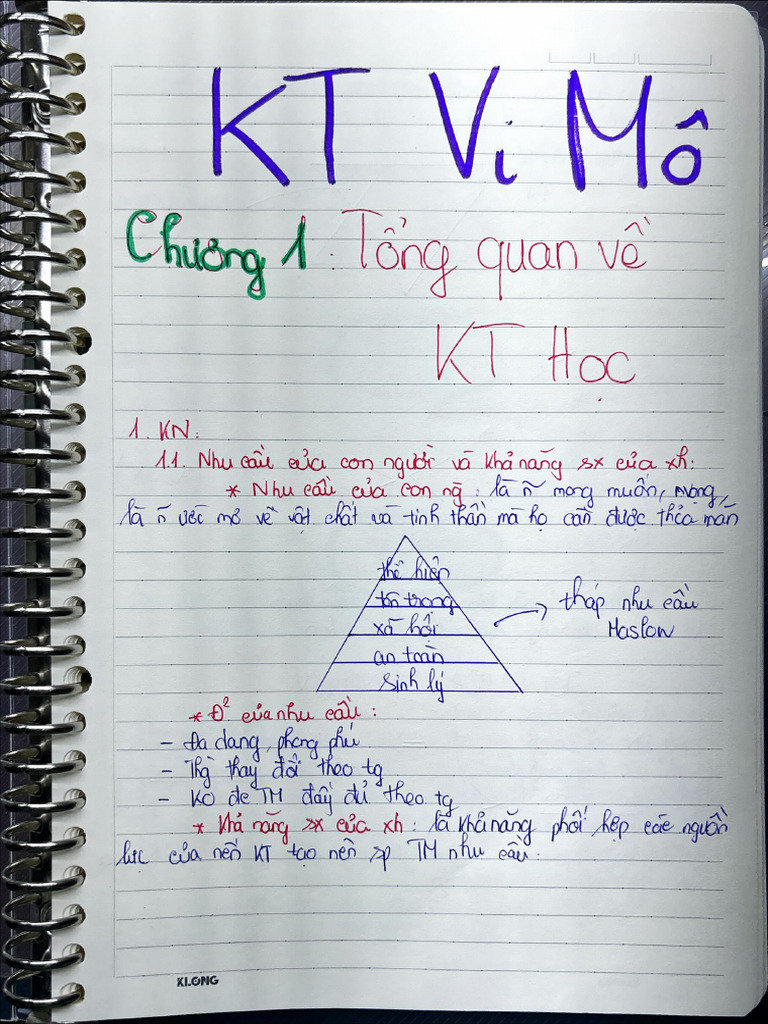 KT Vi Mô
Chương 1: Tổng quan về
KT Học
1. KN:
1.1. Nhu cầu của con người và khả năng sx của xh:
* Nhu cầu của con ng̃: là ñ mong muốn, mọng,
là ñ ước mơ về vật chất và tinh thần mà họ cần được thỏa mãn
thể hiện
tôn trọng
xã hội
an toàn
sinh lý
tháp nhu cầu
Maslow
* Đ² của nhu cầu:
- Đa dạng, phong phú
- Thg̀ thay đổi theo tg
- Ko đc TM đầy đủ theo tg
* Khả năng sx của xh: là khả năng phối hợp các nguồn
lực của nền KT tạo nên sp TM nhu cầu.
KLONG